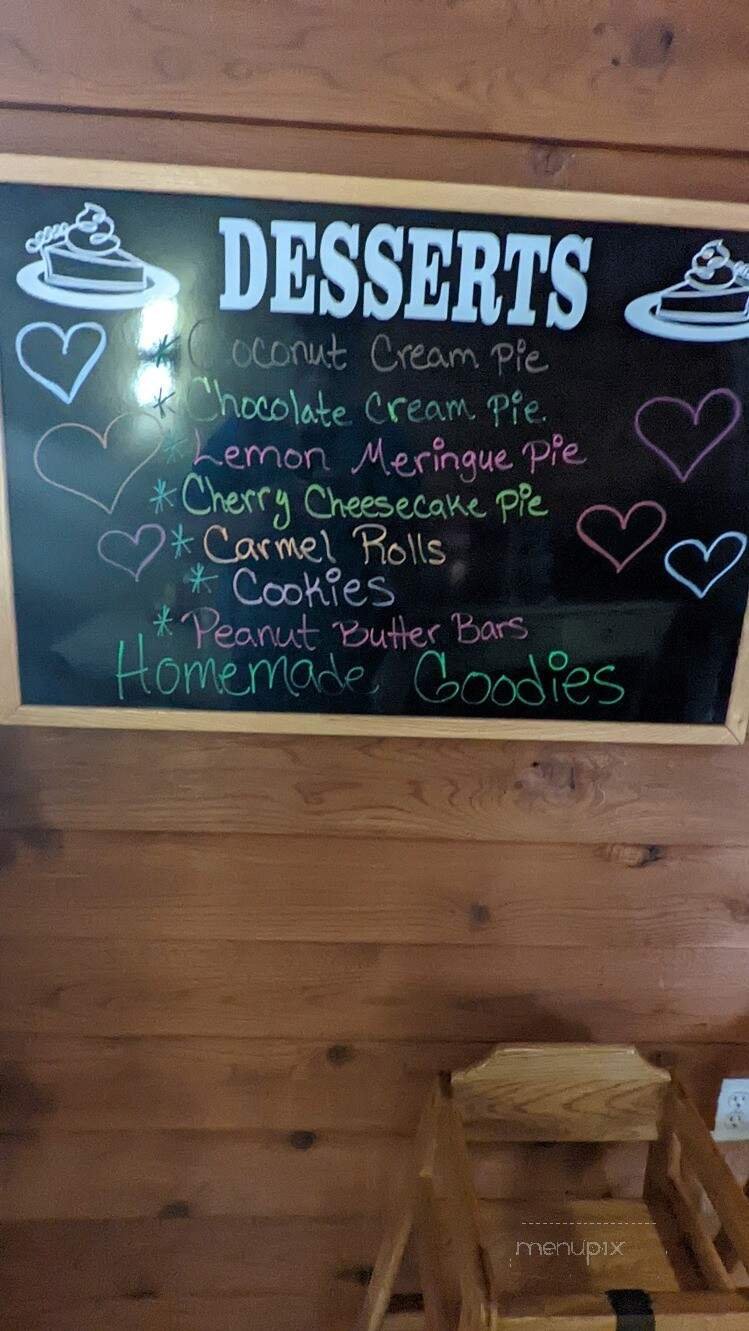 DESSERTS
* Coconut Cream Pie
* Chocolate Cream Pie.
* Lemon Meringue Pie
* Cherry Cheesecake Pie
* Carmel Rolls
* Cookies
* Peanut Butter Bars
Homemade Goodies
menupix